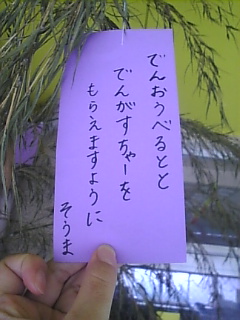 でんおうべるとと
でんがすちゃーを
もらえますように
そうま